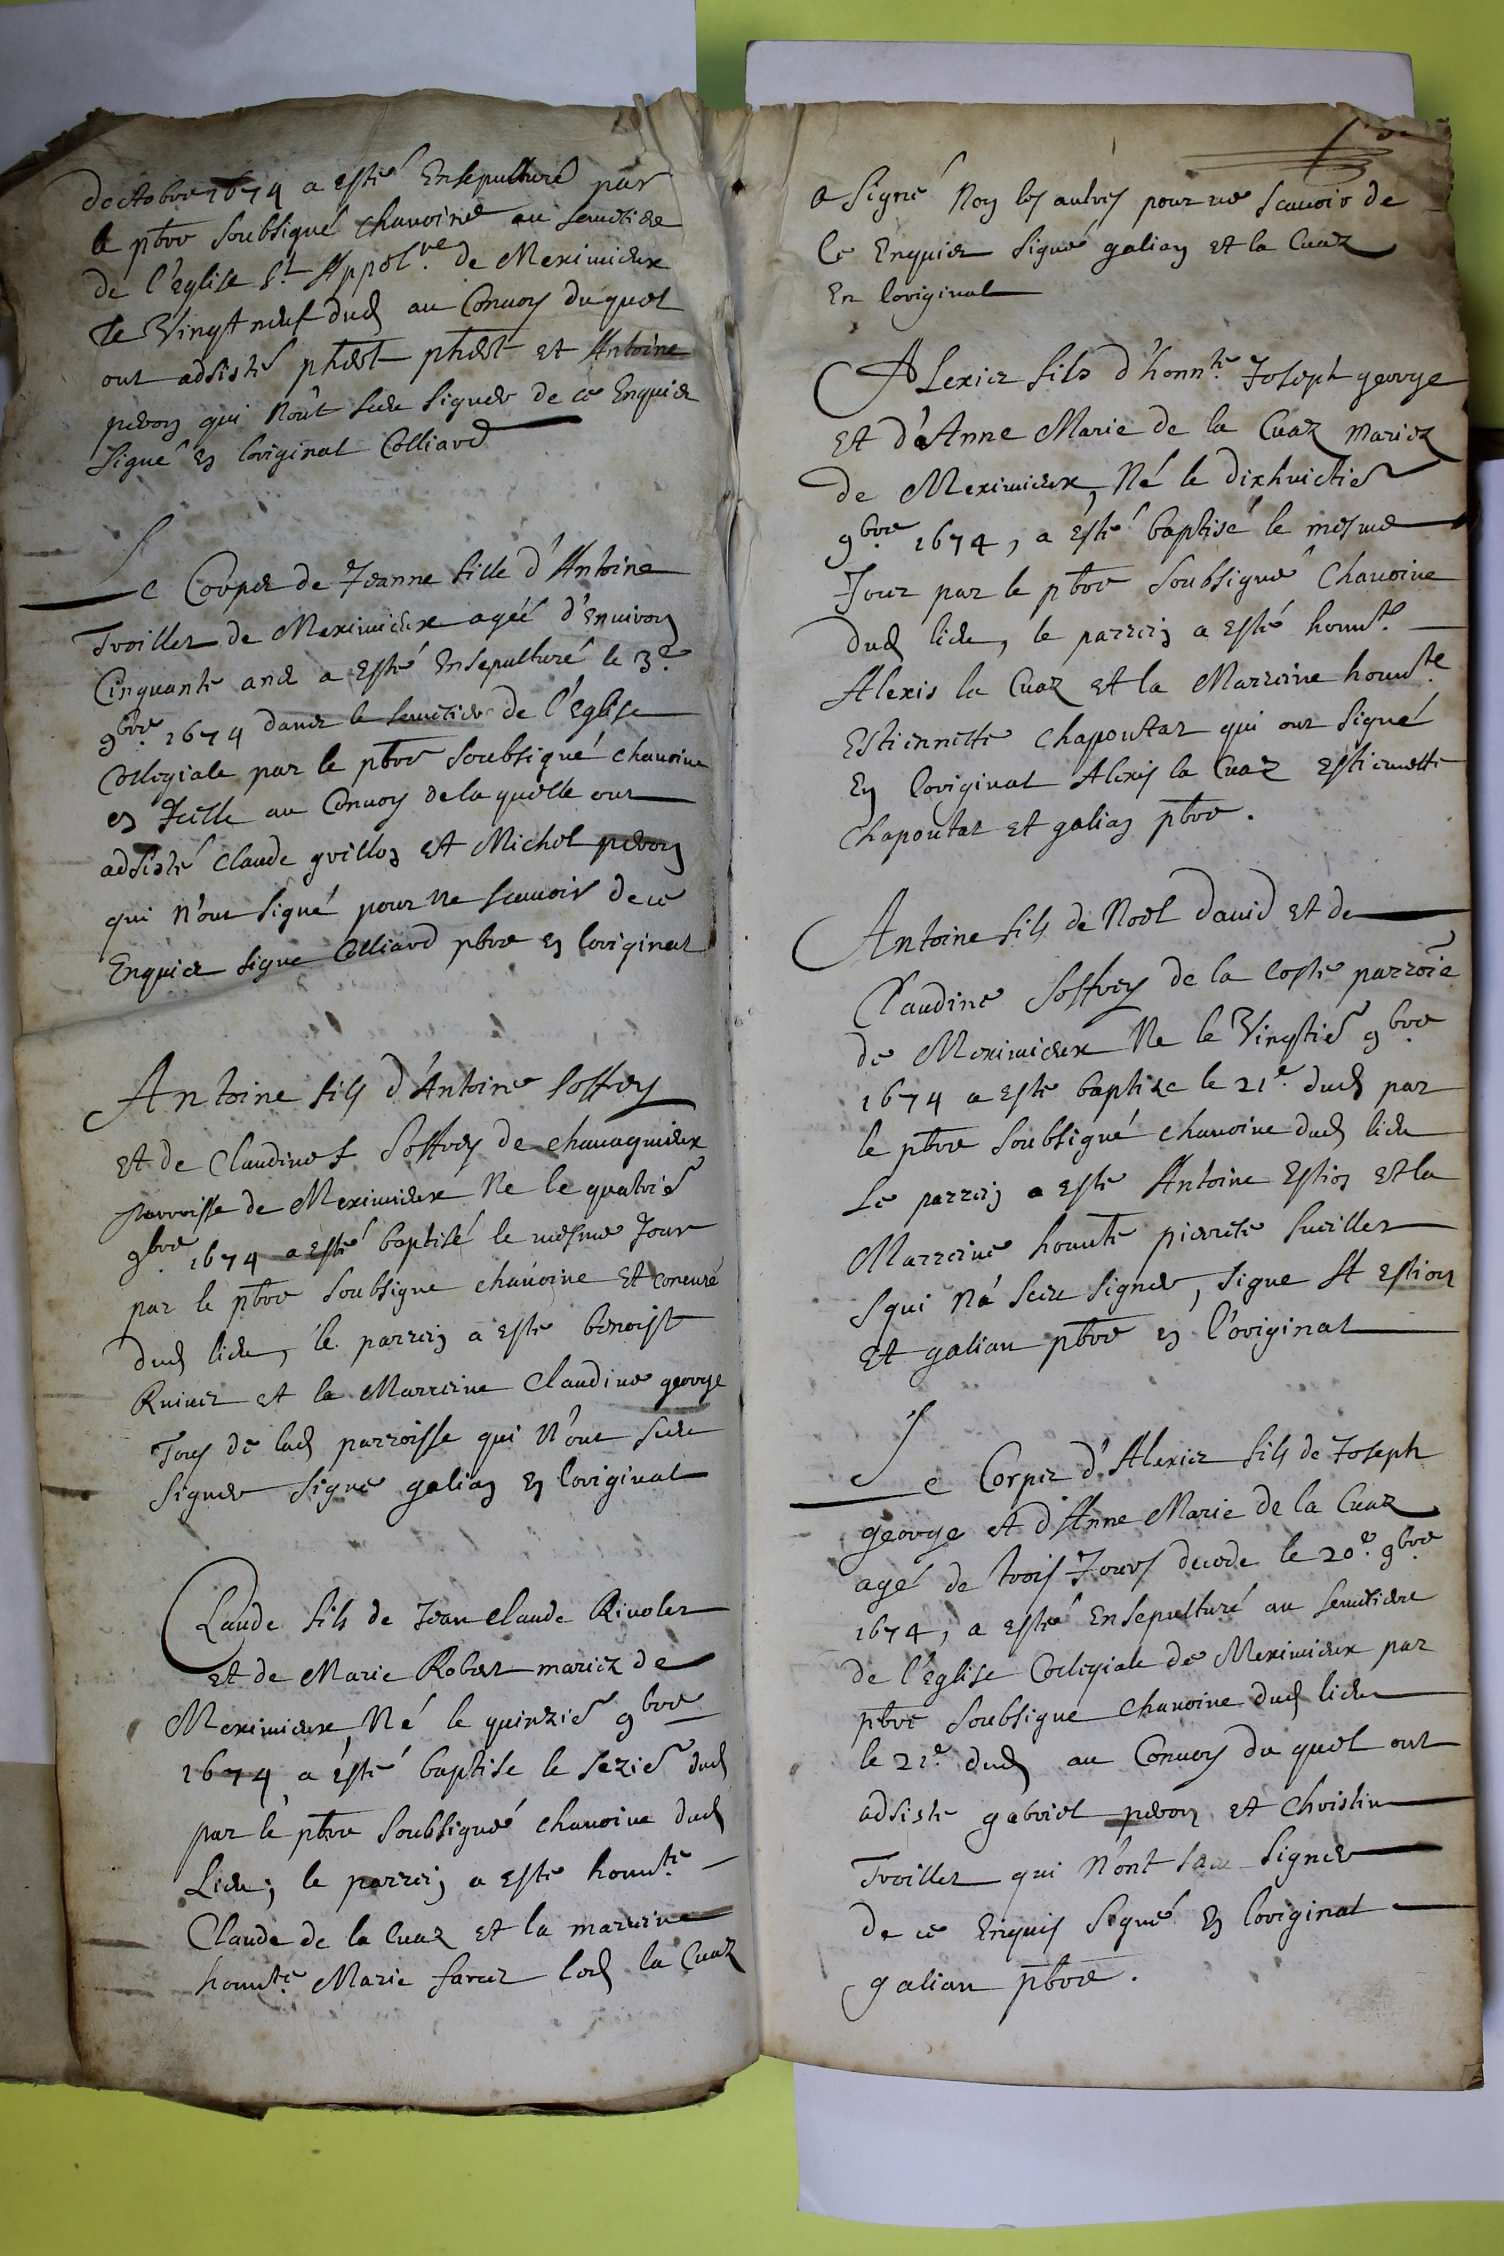 doctobre 1674 a esté Ensepulturé par
le pbre soubsigné chanoine au semetiere
de l'Eglise St Appol.re de Meximieux
le Vingt neuf dud au Convoy duquel
ont adsisté phēt phēt et Antoine
peron qui nont sceu signer de ce Enquis
signé en loriginal Colliard
Le Corps de Jeanne fille d'Antoine
Troillet de Meximieux agéé d'Enuiron
Cinquante ans a Esté Ensepulturé le 3e
9bre 1674 dans le semetiere de l'Eglise
Collegiale par le pbre soubsigné chanoine
en Icelle au Convoy de laquelle ont
adsisté claude guillon et Michel peron
qui n'ont signé pour ne scauoir de ce
Enquis signe Colliard pbre en loriginal
Antoine fils d'Antoine Soffrey
et de Claudine Soffrey de chauagnieux
parroisse de Meximieux Ne le quatrie
9bre 1674 a esté baptisé le mesme Jour
par le pbre soubsigne chanoine et concuré
dud lieu, le parrein a este benoist
Ruinet et la Marreine Claudine george
Tous de lad parroisse qui n'ont sceu
signer signé galian en loriginal
Claude fils de Jean claude Riuolet
et de Marie Robert mariez de
Meximieux, Né le quinzie 9bre
1674 a esté baptise le sezie dud
par le pbre soubsigné chanoine dud
Lieu; le parrein a este honnte
Claude de la Cuaz et la marreine
honnte Marie faruz lod la Cuaz
a signé Non les autres pour ne scauoir de
Ce Enquis signé galian et la Cuaz
En loriginal
Alexis fils d'honnte Joseph george
et d'Anne Marie de la Cuaz mariez
de Meximieux, Né le dixhuictie
9bre 1674, a esté baptisé le mesme
Jour par le pbre soubsigné chanoine
dud lieu, le parrein a esté honnte
Alexis la Cuaz et la Marreine honnte
Estiennette chapoutat qui ont signé
En loriginal Alexis la Cuaz estiennette
chapoutat et galian pbre.
Antoine fils de Noel dauid et de
Claudine Soffrey de la Coste parroiē
de Meximieux Ne le Vingtie 9bre
1674 a este baptize le 21e dud par
le pbre soubsigné chanoine dud lieu
Le parrein a este Antoine Estion et la
Marreine honnte pierrete Sueillet
qui n'a sceu signer, signe A Estion
et galian pbre en l'original
Le Corps d'Alexis fils de Joseph
george et d'Anne Marie de la Cuaz
agé de trois Jours decede le 20e 9bre
1674, a esté Ensepulturé au semetiere
de l'Eglise Collegiale de Meximieux par
pbre soubsigne chanoine dud lieu
le 21e dud au Convoy du quel ont
adsiste gabriel peron et Christin
Troillet qui n'ont sceu signer
de ce Enquis signé En loriginal
galian pbre.